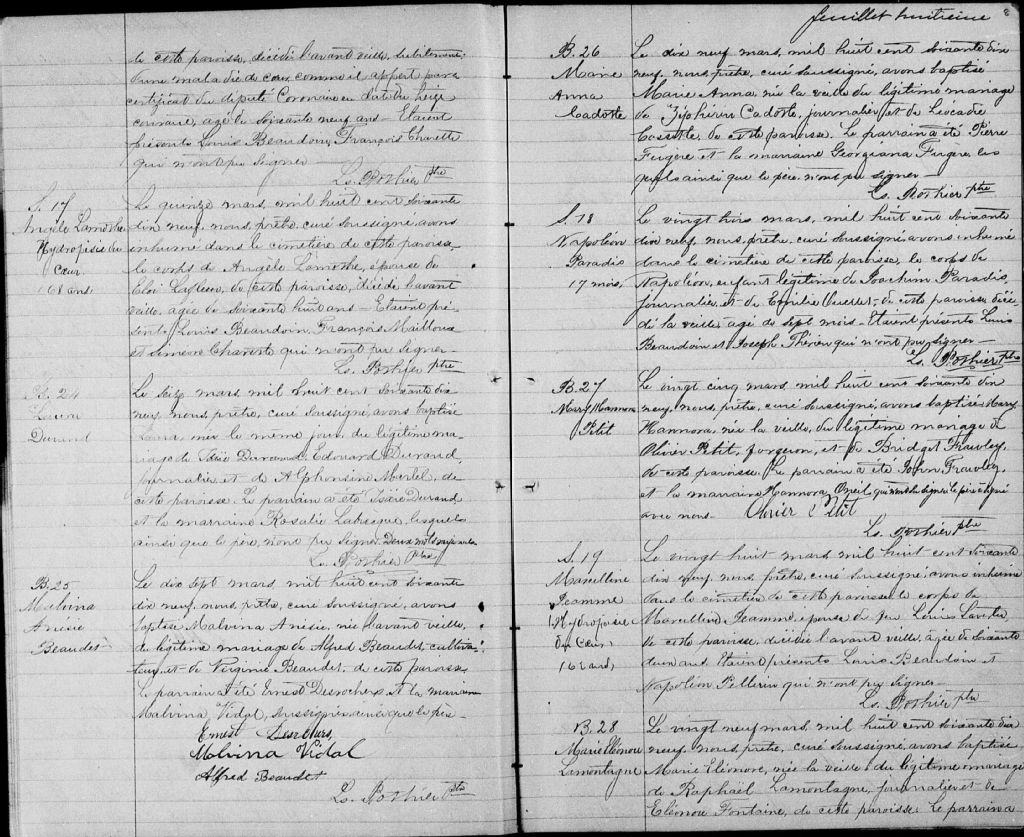 de cette paroisse, décédé l'avant veille, subitement
d'une maladie de cœur comme il appert par
certificat du député Coronaire en date du seize
courant, agé de soixante neuf ans - Etaient
présents Louis Beaudoin, François Charette
qui n'ont pu signer
Ls. Pothier ptre
S. 17
Angèle Lamothe
Hydropisie du
Cœur
68 ans
Le quinze mars, mil huit cent soixante
dix neuf, nous, prêtre, curé soussigné, avons
inhumé dans le cimetière de cette paroisse
le corps de Angèle Lamothe, épouse de
Eloi de cette paroisse, décédée l'avant
veille, agée de soixante huit ans - Etaient pré-
sents Louis Beaudoin, François Mailloux
et Charest qui n'ont pu signer -
Ls. Pothier ptre
B. 24
Laura
Durand
Le seize mars mil huit cent soixante dix
neuf, nous, prêtre, curé soussigné, avons baptisé
Laura, née le même jour, du légitime ma-
riage de Edouard Durand,
journalier et de Alphonsine Martel, de
cette paroisse. Le parrain a été Durand
et la marraine Rosalie Labrèque, lesquels
ainsi que le père, n'ont pu signer. Deux mots
Ls. Pothier Ptre
B. 25
Malvina
Anésie
Beaudet
Le dix sept mars mil huit cent soixante
dix neuf, nous, prêtre, curé soussigné, avons
baptisé Malvina Anésie, née l'avant veille,
du légitime mariage de Alfred Beaudet, cultiva-
teur et de Virginie Beaudet, de cette paroisse.
Le parrain a été Ernest Desrochers et la marraine
Malvina Vidal, soussignés ainsi que le père
Ernest
Malvina Vidal
Alfred Beaudet
Ls. Pothier Ptre
feuillet huitième
8
B. 26
Marie
Anna
Cadotte
Le dix neuf mars, mil huit cent soixante dix
neuf, nous, prêtre, curé soussigné, avons baptisé
Marie Anna, née la veille du légitime mariage
de Zéphirin Cadotte, journalier et de Léocadie
de cette paroisse. Le parrain a été Pierre
Fugère et la marraine Georgiana Fugère, les
quels ainsi que le père, n'ont pu signer -
Ls. Pothier ptre
S. 18
Napoléon
Paradis
17 mois
Le vingt trois mars, mil huit cent soixante
dix neuf, nous, prêtre, curé soussigné, avons inhumé
dans le cimetière de cette paroisse, le corps de
Napoléon, enfant légitime de Joachim Paradis,
journalier et de Emilie de cette paroisse décé-
dé la veille, agé de sept mois - Etaient présents Louis
Beaudoin et Joseph Thérien qui n'ont pu signer -
Ls. Pothier ptre
B. 27
Mary Hannora
Petit
Le vingt cinq mars, mil huit cent soixante dix
neuf, nous, prêtre, curé soussigné, avons baptisé Mary
Hannora, née la veille, du légitime mariage de
Olivier Petit, forgeron, et de Bridget Frawley,
de cette paroisse. Le parrain a été John Frawley
et la marraine Hannora Oneil, qui n'ont su signer le père a signé
avec nous. Olivier Petit
Ls. Pothier ptre
S. 19
Marcelline
Jeamme
Hydropisie
du Cœur
62 ans
Le vingt huit mars, mil huit cent soixante
dix neuf, nous, prêtre, curé soussigné, avons inhumé
dans le cimetière de cette paroisse le corps de
Marcelline Jeamme épouse de feu Louis
de cette paroisse, décédée l'avant veille, agée de soixante
deux ans Etaient présents Louis Beaudoin et
Napoléon Pellerin qui n'ont pu signer
Ls. Pothier ptre
B. 28
Marie Eléonore
Lamontagne
Le vingt neuf mars, mil huit cent soixante dix
neuf, nous, prêtre, curé soussigné, avons baptisé
Marie Eléonore, née la veille, du légitime mariage
de Raphaël Lamontagne, journalier et de
Eléonore Fontaine, de cette paroisse. Le parrain a